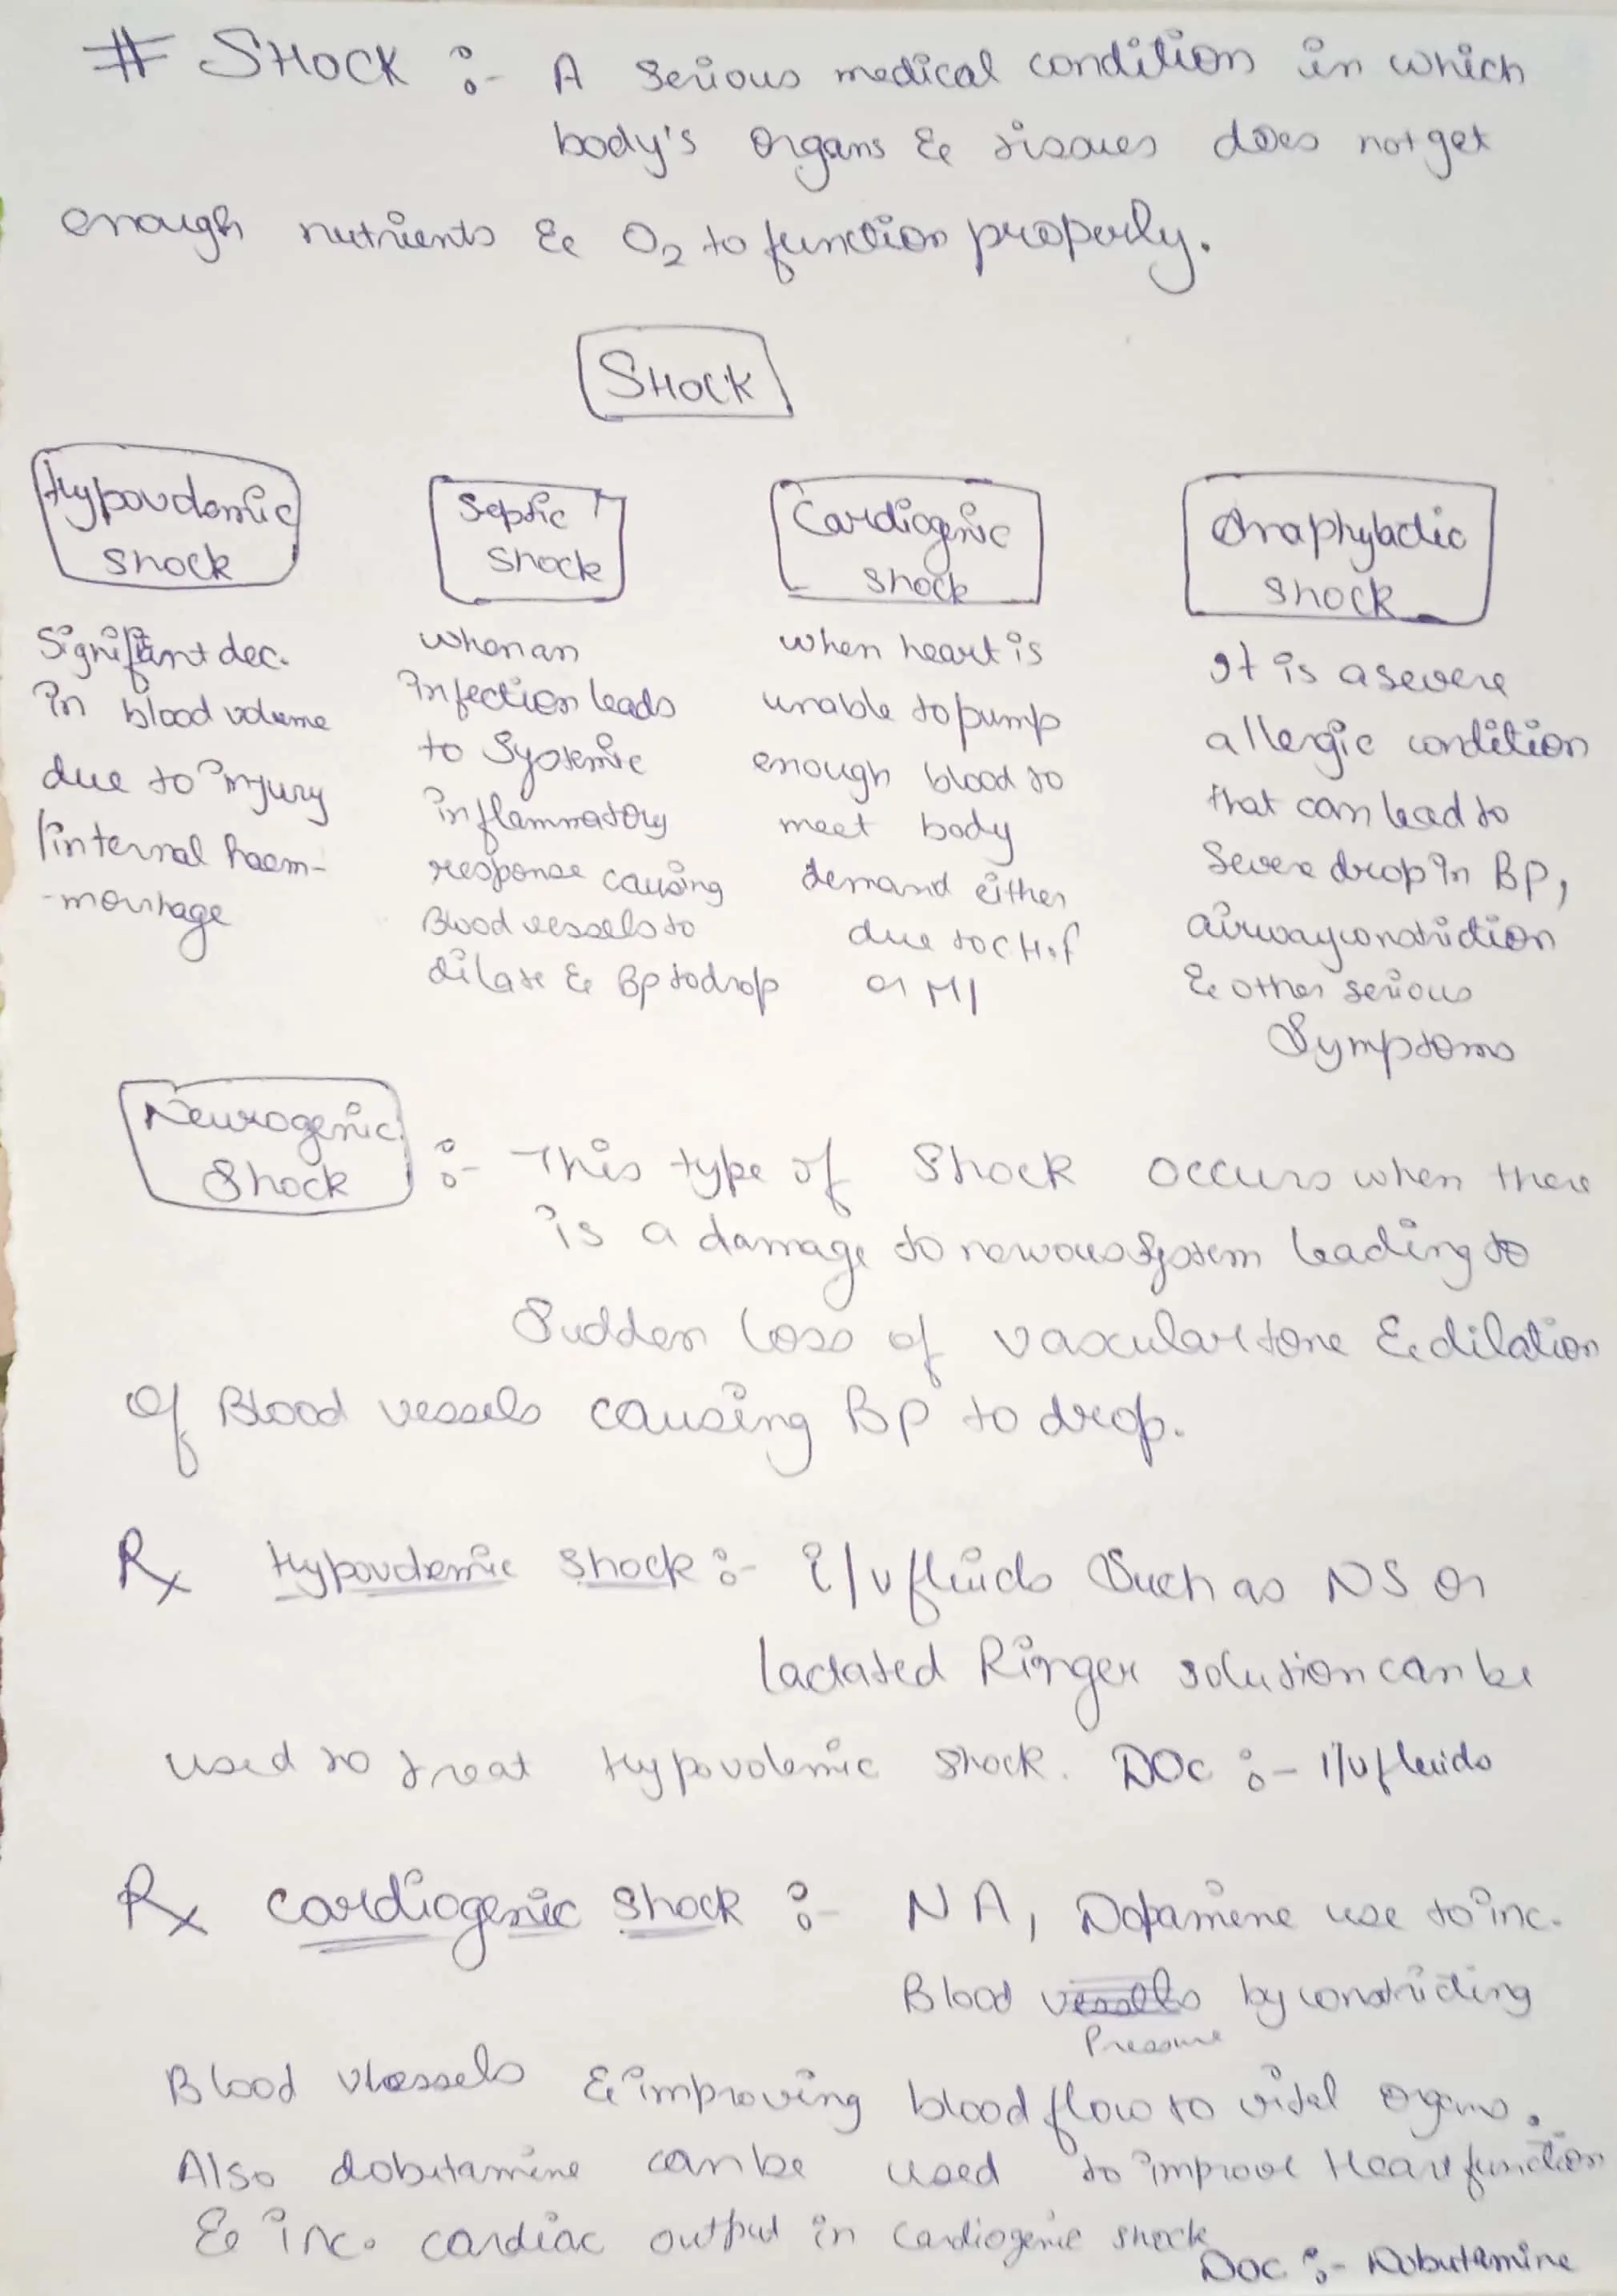 # SHOCK :- A serious medical condition in which
body's organs & tissues does not get
enough nutrients & O2 to function properly.
SHOCK
Hypovolemic
shock
Significant dec.
in blood volume
due to injury
/internal haem-
-morrhage
Septic
shock
when an
infection leads
to systemic
inflammatory
response causing
Blood vessels to
dilate & Bp to drop
Cardiogenic
shock
when heart is
unable to pump
enough blood to
meet body
demand either
due to CH.f
or MI
Anaphylactic
shock
It is a severe
allergic condition
that can lead to
severe drop in BP,
airway constriction
& other serious
Symptoms
Neurogenic
Shock :- This type of Shock occurs when there
is a damage to nervous system leading to
Sudden loss of vascular tone & dilation
of Blood vessels causing BP to drop.
Rx Hypovolemic shock :- i/v fluids Such as NS or
lactated Ringer solution can be
used to treat Hypovolemic shock. DOC :- I/v fluids
Rx cardiogenic shock :- NA, Dopamine use to inc.
Blood vessels by constricting
Pressure
Blood vessels & improving blood flow to vital organs.
Also dobutamine can be used to improve Heart function
& inc. cardiac output in cardiogenic shock
DOC :- Dobutamine